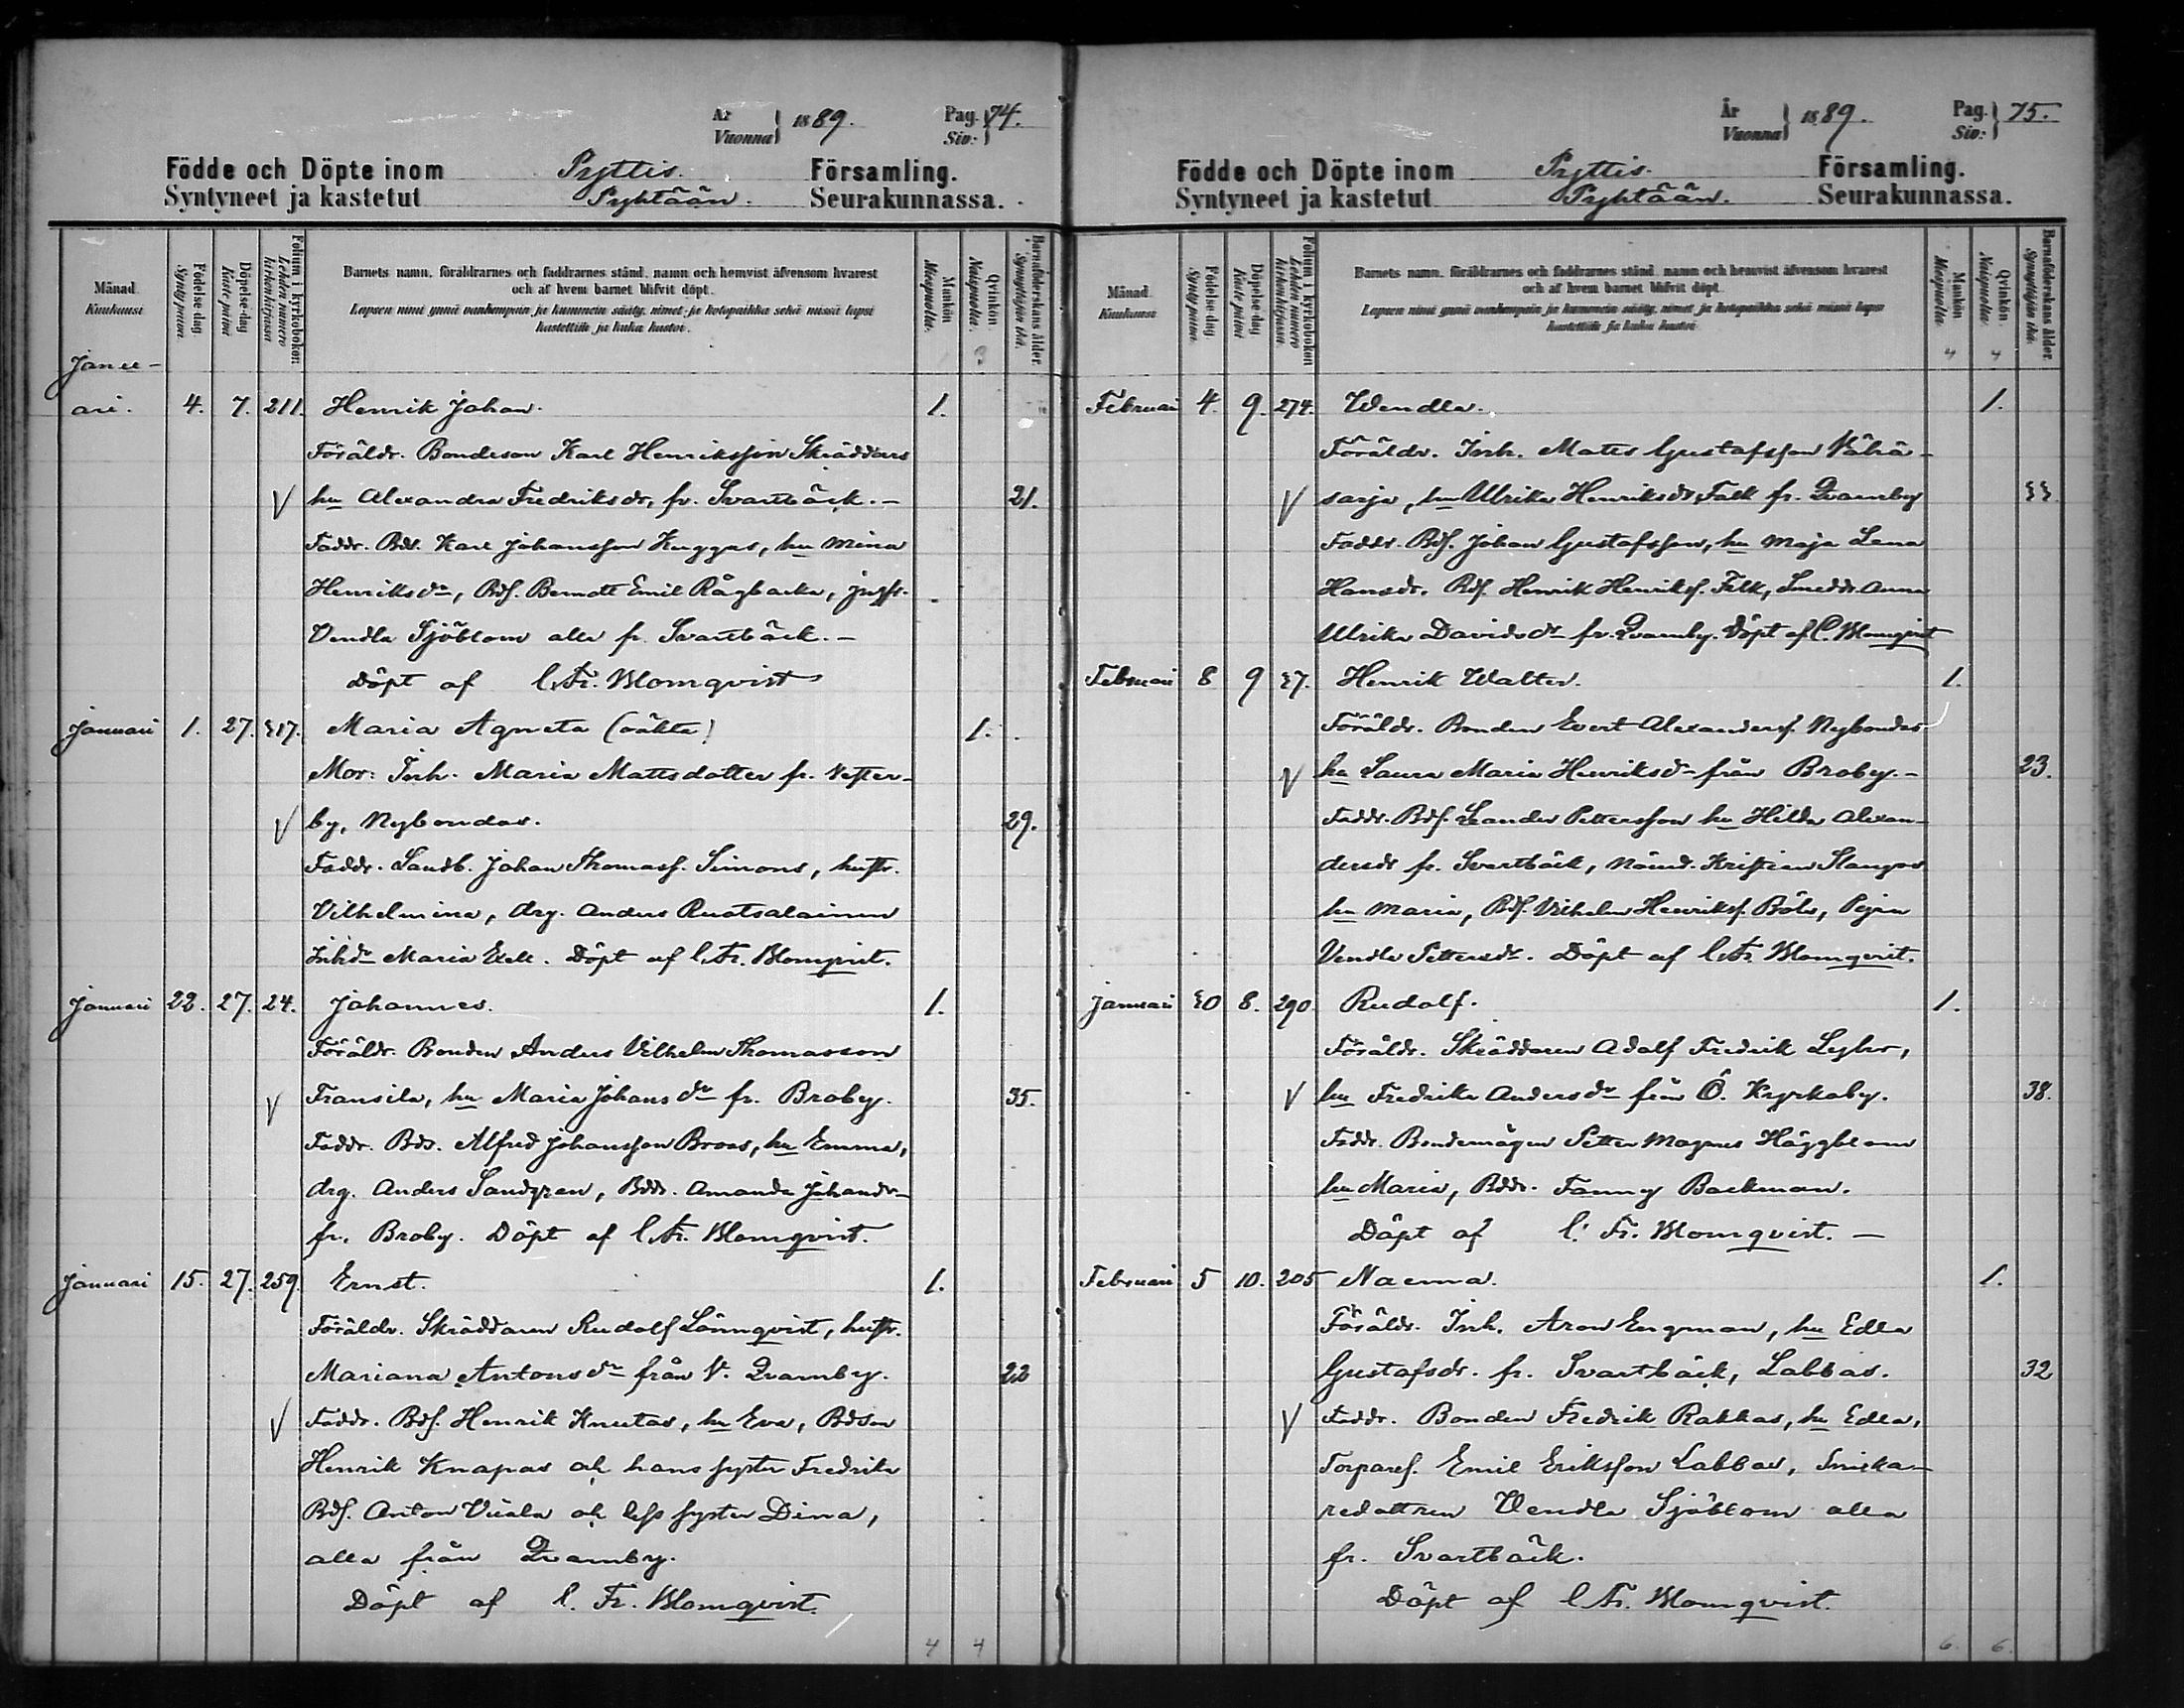 År
Vuonna } 1889. Pag. Siv: } 74.
Födde och Döpte inom Pyttis. Församling.
Syntyneet ja kastetut Pyhtään. Seurakunnassa.
Månad Kuukausi
Födelse-dag. Syntypäivä.
Döpelse-dag. Kaste päivä
Folium i kyrkoboken Lehden numero kirkonkirjassa
Barnets namn, föräldrarnes och faddrarnes stånd, namn och hemvist äfvensom hvarest
och af hvem barnet blifvit döpt.
Lapsen nimi ynnä vanhempain ja kummein sääty, nimet ja kotopaikka sekä missä lapsi
kastettiin ja kuka kastoi.
Mankön Miespuolia.
Qvinkön Naispuolia.
Barnaföderskans ålder. Synnyttäjän ikä.
3
Janu-
ari. 4. 7. 211. Henrik Johan. 1.
Föräldr. Bondeson Karl Henriksson Skräddars
hu Alexandra Fredriksdr, fr. Svartbäck. – 21.
Faddr. Bds. Karl Johansson Kuggas, hu Mina
Henriksdr, Bdf. Berndt Emil Rågbacka, jngfr.
Vendla Sjöblom alla fr. Svartbäck. –
Döpt af C. Fr. Blomqvist
Januari 1. 27. 317. Maria Agneta (oäkta) 1.
Mor: Inh. Maria Mattsdotter fr. Vester-
by, Nybondas. 29.
Faddr. Landb. Johan Thomass. Simons, hustr.
Vilhelmina, drg. Anders Ruotsalainen
Inhdr Maria Eek. Döpt af C. Fr. Blomqvist.
Januari 22. 27. 24. Johannes. 1.
Föräldr. Bonden Anders Vilhelm Thomasson
Fransila, hu Maria Johansdr fr. Broby. 35.
Faddr. Bds. Alfred Johansson Broas, hu Emma,
drg. Anders Sandgren, Bddr. Amanda Johansdr
fr. Broby. Döpt af C. Fr. Blomqvist.
Januari 15. 27. 259. Ernst. 1.
Föräldr. Skräddaren Rudolf Lönnqvist, hustr.
Mariana Antonsdr från V. Qvarnby. 22
Faddr. Bdf. Henrik Knutas, hu Eva, Bdson
Henrik Knapas och hans syster Fredrika
Bdf. Anton och dess syster Dina,
alla från Qvarnby.
Döpt af C. Fr. Blomqvist.
4 4
År
Vuonna } 1889. Pag. Siv: } 75.
Födde och Döpte inom Pyttis. Församling.
Syntyneet ja kastetut Pyhtään. Seurakunnassa.
Månad Kuukausi
Födelse-dag. Syntypäivä.
Döpelse-dag. Kaste päivä
Folium i kyrkoboken Lehden numero kirkonkirjassa.
Barnets namn, föräldrarnes och faddrarnes stånd, namn och hemvist äfvensom hvarest
och af hvem barnet blifvit döpt.
Lapsen nimi ynnä vanhempain ja kummein sääty, nimet ja kotopaikka sekä missä lapsi
kastettiin ja kuka kastoi.
Mankön Miespuolia.
Qvinkön Naispuolia.
Barnaföderskans ålder. Synnyttäjän ikä.
4 4
Februari 4. 9. 274. Wendla. 1.
Föräldr. Inh. Matts Gustafsson Vähä-
sarja, hu Ulrika Henriksdr Falk fr. Qvarnby 33
Faddr. Bdf. Johan Gustafsson, hu Maja Lena
Hansdr. Bdf. Henrik Henriksf. Falk, Smeddr. Anna
Ulrika Davidsdr fr. Qvarnby. Döpt af C. Blomqvist
Februari 8 9 37. Henrik Walter. 1.
Föräldr. Bonden Evert Alexandersf. Nybondas
hu Laura Maria Henriksdr från Broby. – 23.
Faddr. Bdf. Leander Pettersson hu Hilda Alexan-
dersdr fr. Svartbäck, Nämd. Kristian Stangas
hu Maria, Bdf. Vilhelm Henriksf. Böls, Pigan
Vendla Pettersdr. Döpt af C. Fr. Blomqvist.
Januari 30 8. 290. Rudolf. 1.
Föräldr. Skräddaren Adolf Fredrik
hu Fredrika Andersdr från Ö. Kyrkoby. 38.
Faddr. Bondemågen Petter Magnus Häggblom
hu Maria, Bddr. Fanny Backman.
Döpt af C. Fr. Blomqvist. –
Februari 5 10. 205 Naema. 1.
Föräldr. Inh. Aron Engman, hu Edla
Gustafsdr. fr. Svartbäck, Labbas. 32
Faddr. Bonden Fredrik Rakkas, hu Edla,
Torparef. Emil Eriksson Labbas, Snicka-
redottren Vendla Sjöblom alla
fr. Svartbäck.
Döpt af C. Fr. Blomqvist.
6. 6.